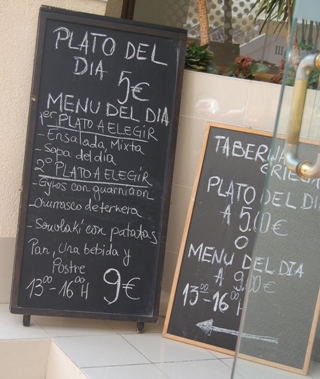 PLATO DEL
DIA 5€
MENU DEL DIA
1er PLATO A ELEGIR
- Ensalada Mixta
- Sopa del dia
2º PLATO A ELEGIR
- Gyros con guarnicion
- Churrasco de ternera
- Souvlaki con patatas
Pan, Una bebida y
Postre
13⁰⁰-16⁰⁰H 9€
TABERNA
GRIEGA
PLATO DEL DI
A 5.00€
O
MENU DEL DIA
A 9.00€
13⁰⁰-16⁰⁰H